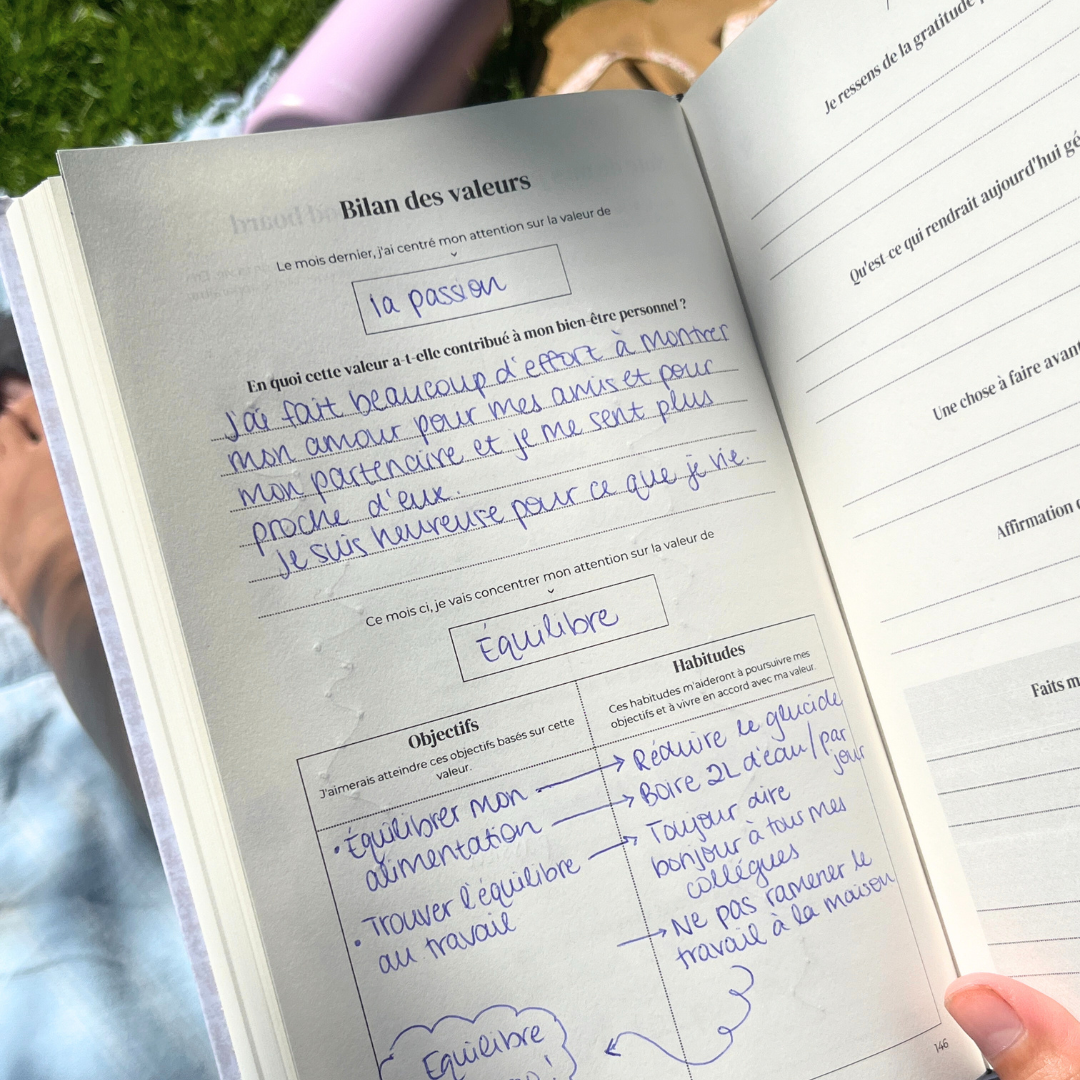 Bilan des valeurs
Le mois dernier, j'ai centré mon attention sur la valeur de
la passion
En quoi cette valeur a-t-elle contribué à mon bien-être personnel ?
J'ai fait beaucoup d'effort à montrer
mon amour pour mes amis et pour
mon partenaire et je me sent plus
proche d'eux.
Je suis heureuse pour ce que je vie.
Ce mois ci, je vais concentrer mon attention sur la valeur de
Équilibre
Objectifs
J'aimerais atteindre ces objectifs basés sur cette
valeur.
• Équilibrer mon
alimentation
• Trouver l'équilibre
au travail
Equilibre
Habitudes
Ces habitudes m'aideront à poursuivre mes
objectifs et à vivre en accord avec ma valeur.
→ Réduire le glucide
→ Boire 2L d'eau/par
jour
→ Toujour dire
bonjour à tous mes
collégues
→ Ne pas ramener le
travail à la maison
146
Je ressens de la gratitude
Qu'est-ce qui rendrait aujourd'hui
Une chose à faire
Affirmation
Faits